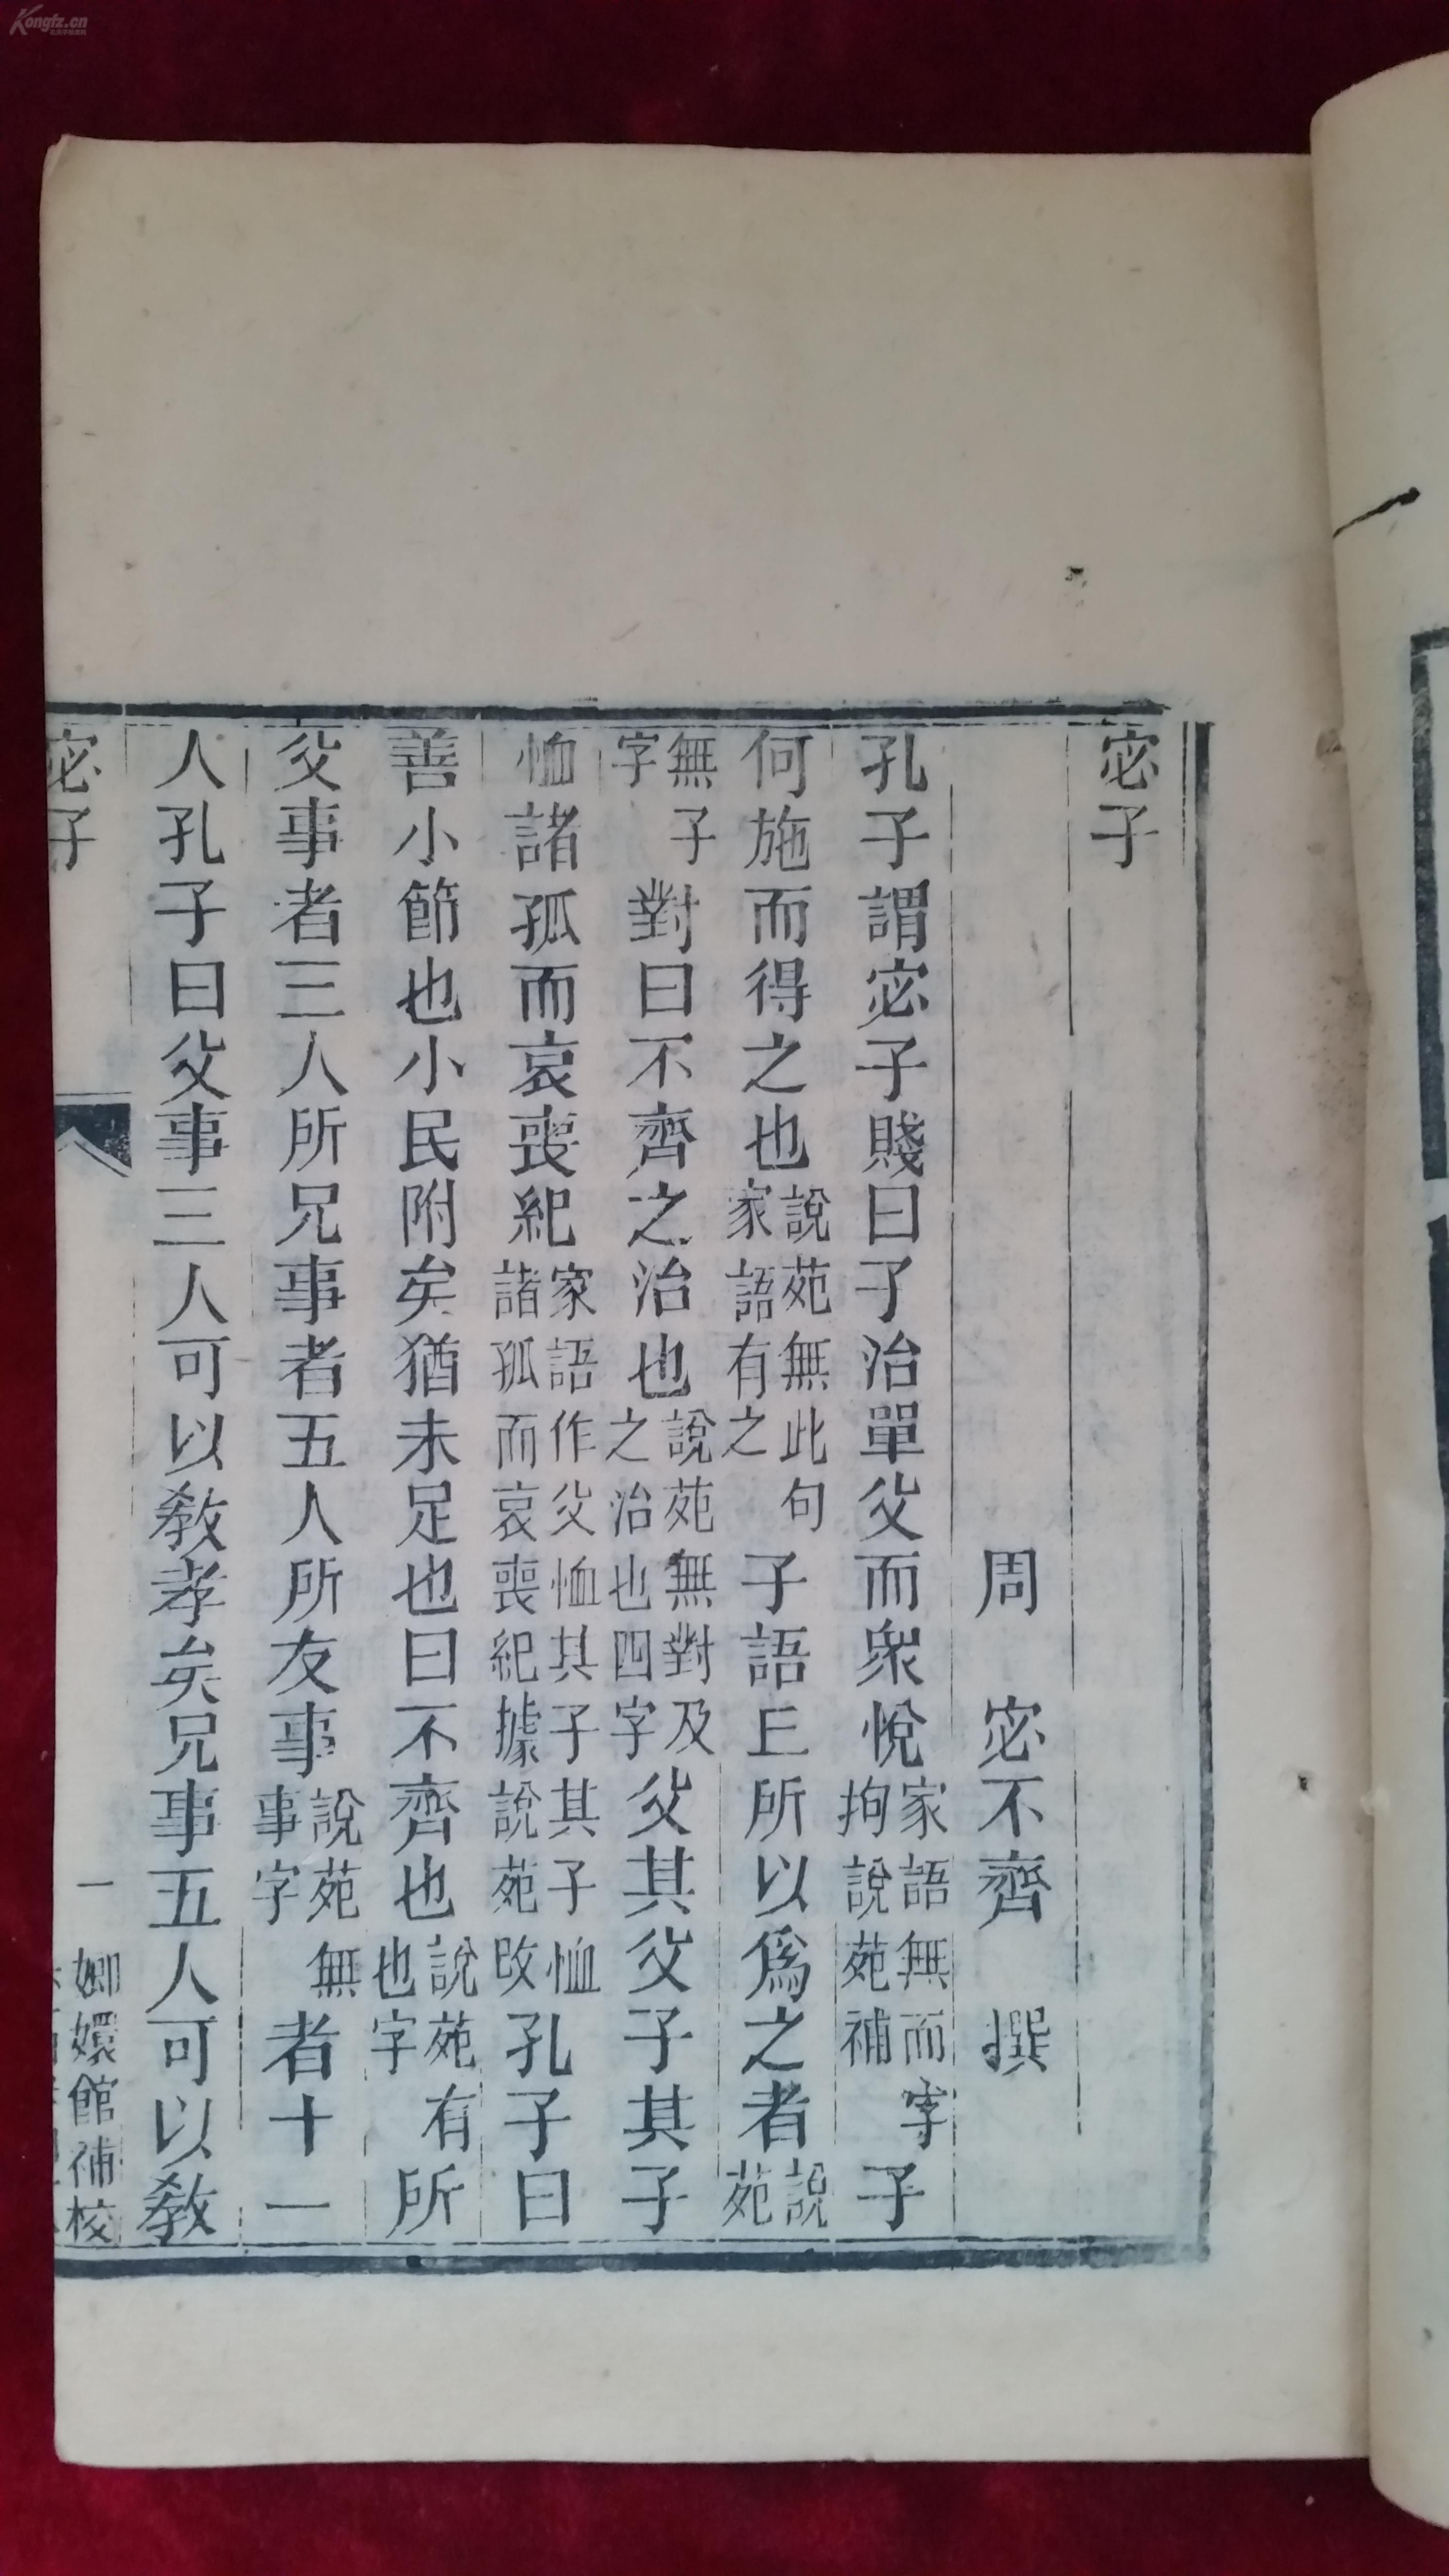 Kongfz.cn
宓子
周 宓不齊 撰
孔子謂宓子賤曰子治單父而衆悅家語無而字拘說苑補子
何施而得之也說苑無此句家語有之子語丘所以爲之者說苑
無子字對曰不齊之治也說苑無對及之治也四字父其父子其子
恤諸孤而哀喪紀家語作父恤其子其子恤諸孤而哀喪紀據說苑改孔子曰
善小節也小民附矣猶未足也曰不齊也說苑有也字所
父事者三人所兄事者五人所友事說苑無事字者十一
人孔子曰父事三人可以敎孝矣兄事五人可以敎
宓子 一 嫏嬛館補校